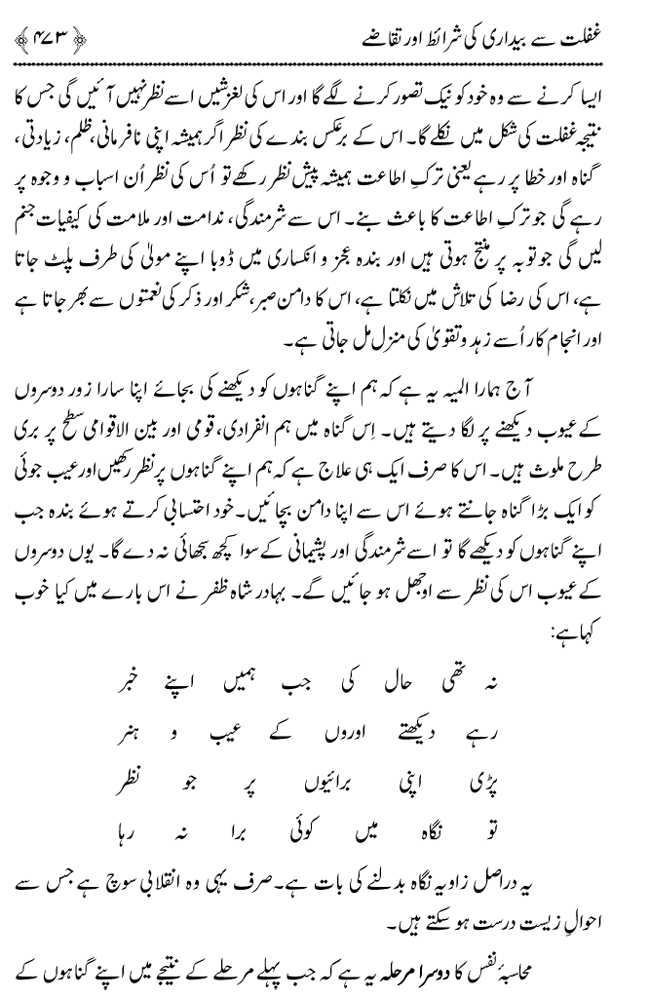 غفلت سے بیداری کی شرائط اور تقاضے ﴿۴۷۳﴾
ایسا کرنے سے وہ خود کو نیک تصور کرنے لگے گا اور اس کی لغزشیں اسے نظر نہیں آئیں گی جس کا
نتیجہ غفلت کی شکل میں نکلے گا۔ اس کے برعکس بندے کی نظر اگر ہمیشہ اپنی نافرمانی، ظلم، زیادتی،
گناہ اور خطا پر رہے یعنی ترکِ اطاعت ہمیشہ پیش نظر رکھے تو اُس کی نظر اُن اسباب و وجوہ پر
رہے گی جو ترکِ اطاعت کا باعث بنے۔ اس سے شرمندگی، ندامت اور ملامت کی کیفیات جنم
لیں گی جو توبہ پر منتج ہوتی ہیں اور بندہ عجز و انکساری میں ڈوبا اپنے مولیٰ کی طرف پلٹ جاتا
ہے، اس کی رضا کی تلاش میں نکلتا ہے، اس کا دامن صبر، شکر اور ذکر کی نعمتوں سے بھر جاتا ہے
اور انجام کار اُسے زہد و تقویٰ کی منزل مل جاتی ہے۔
آج ہمارا المیہ یہ ہے کہ ہم اپنے گناہوں کو دیکھنے کی بجائے اپنا سارا زور دوسروں
کے عیوب دیکھنے پر لگا دیتے ہیں۔ اِس گناہ میں ہم انفرادی، قومی اور بین الاقوامی سطح پر بری
طرح ملوث ہیں۔ اس کا صرف ایک ہی علاج ہے کہ ہم اپنے گناہوں پر نظر رکھیں اور عیب جوئی
کو ایک بڑا گناہ جانتے ہوئے اس سے اپنا دامن بچائیں۔ خود احتسابی کرتے ہوئے بندہ جب
اپنے گناہوں کو دیکھے گا تو اسے شرمندگی اور پشیمانی کے سوا کچھ سجھائی نہ دے گا۔ یوں دوسروں
کے عیوب اس کی نظر سے اوجھل ہو جائیں گے۔ بہادر شاہ ظفر نے اس بارے میں کیا خوب
کہا ہے:
نہ تھی حال کی جب ہمیں اپنے خبر
رہے دیکھتے اوروں کے عیب و ہنر
پڑی اپنی برائیوں پر جو نظر
تو نگاہ میں کوئی برا نہ رہا
یہ دراصل زاویہ نگاہ بدلنے کی بات ہے۔ صرف یہی وہ انقلابی سوچ ہے جس سے
احوالِ زیست درست ہو سکتے ہیں۔
محاسبۂ نفس کا دوسرا مرحلہ یہ ہے کہ جب پہلے مرحلے کے نتیجے میں اپنے گناہوں کے